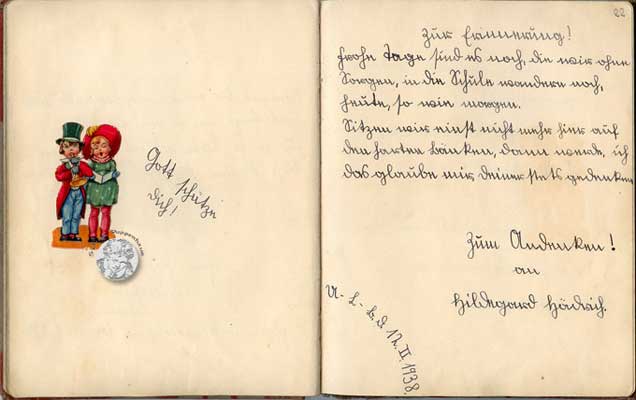 Gott schütze
dich!
22
Zur Erinnerung!
Frohe Tage sind es noch, die wir ohne
Sorgen, in die Schule wandern noch,
heute, so wie morgen.
Sitzen wir einst nicht mehr hier auf
den harten Bänken, dann werde, ich
das glaube mir deiner stets gedenken
Zum Andenken!
an
Hildegard
12.II.1938.